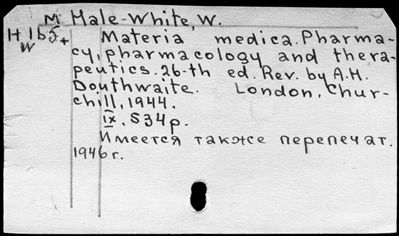 M Hale-White, W.
H 165+ Materia medica. Pharma-
W cy, pharmacology and thera-
peutics. 26-th ed. Rev. by A.H.
Douthwaite. London, Chur-
chill, 1944.
IX, 534p.
Имеется также перепечат.
1946г.